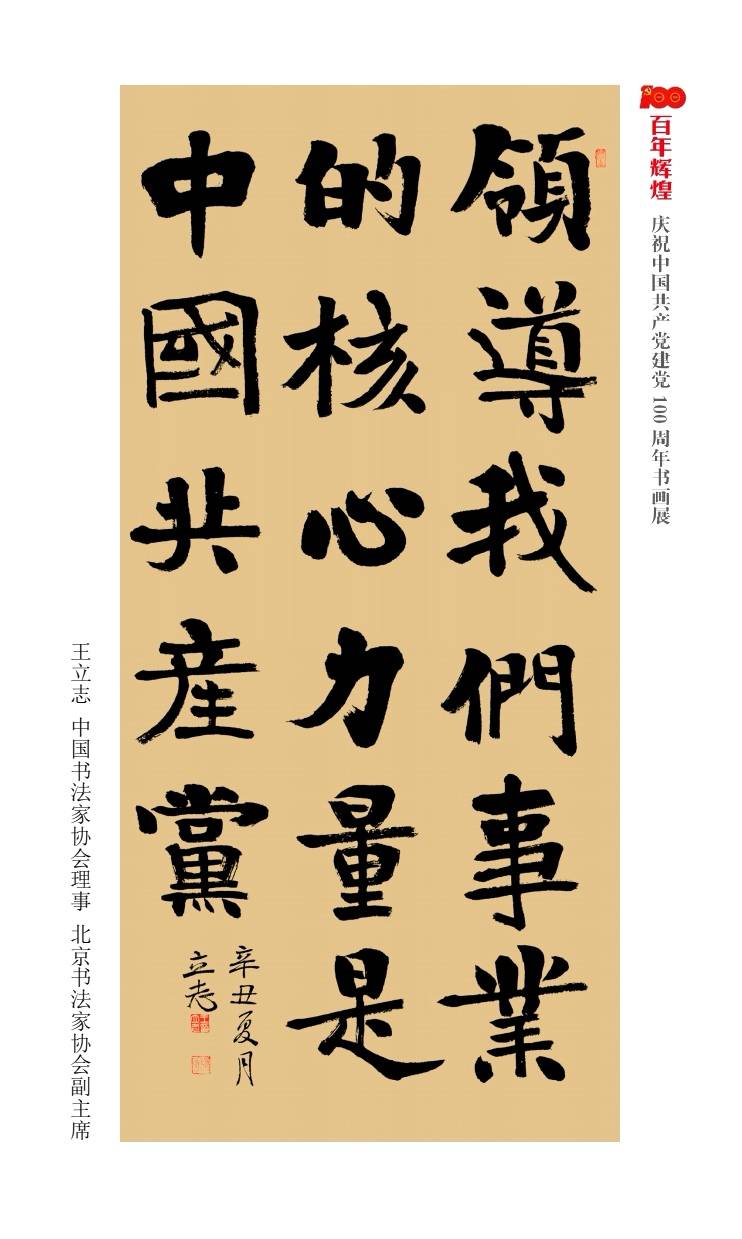 100
百年辉煌
庆祝中国共产党建党 100 周年书画展
領導我們事業
的核心力量是
中國共産黨
辛丑夏月
立志
王立志 中国书法家协会理事 北京书法家协会副主席